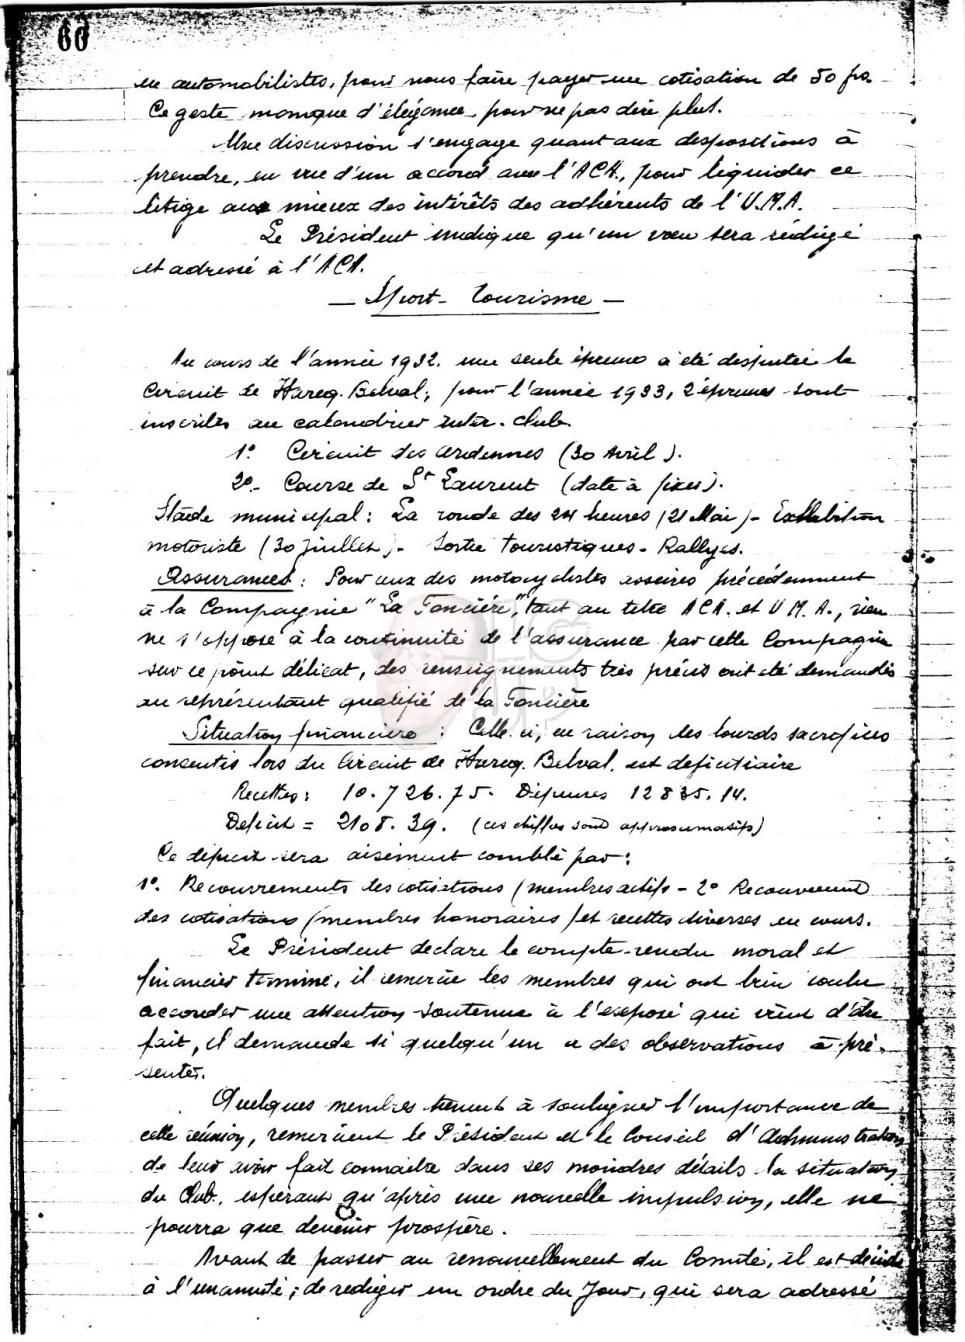 60
en automobilistes, pour nous faire payer une cotisation de 50 frs.
Ce geste manque d'élégance, pour ne pas dire plus.
Une discussion s'engage quant aux dispositions à
prendre, en vue d'un accord avec l'ACA, pour liquider ce
litige au mieux des intérêts des adhérents de l'U.M.A.
Le Président indique qu'un vœu sera rédigé
et adressé à l'ACA.
— Sport - Tourisme —
Au cours de l'année 1932, une seule épreuve a été disputée le
Circuit de Harcq. Belval, pour l'année 1933, 2 épreuves sont
inscrites au calendrier inter-club.
1º Circuit des Ardennes (30 Avril).
2º- Course de St Laurent (date à fixer).
Stade municipal : La ronde des 24 heures (21 Mai) - Exhibition
motoriste (30 Juillet) - Sortie touristiques - Rallyes.
Assurances : Pour ceux des motocyclistes assurés précédemment
à la Compagnie "La Foncière", tant au titre ACA. et U M A., rien
ne s'oppose à la continuité de l'assurance par cette Compagnie
sur ce point délicat, des renseignements très précis ont été demandés
au représentant qualifié de la Foncière
Situation financière : Celle-ci, en raison des lourds sacrifices
consentis lors du Circuit de Harcq. Belval, est déficitiaire
Recettes : 10.726.75. Dépenses 12835.14.
Deficit = 2108.39. (ces chiffres sont approximatifs)
Ce déficit sera aisément comblé par :
1º. Recouvrements des cotisations (membres actifs - 2º Recouvrement
des cotisations (membres honoraires) et recettes diverses en cours.
Le Président déclare le compte-rendu moral et
financier terminé, il remercie les membres qui ont bien voulu
accorder une attention soutenue à l'exposé qui vient d'être
fait, il demande si quelqu'un a des observations à pré-
senter.
Quelques membres tiennent à souligner l'importance de
cette réunion, remercient le Président et le Conseil d'Administration
de leur avoir fait connaître dans ses moindres détails la situation
du Club, espérant qu'après une nouvelle impulsion, elle ne
pourra que devenir prospère.
Avant de passer au renouvellement du Comité, il est décidé
à l'unanimité, de rédiger un ordre du Jour, qui sera adressé